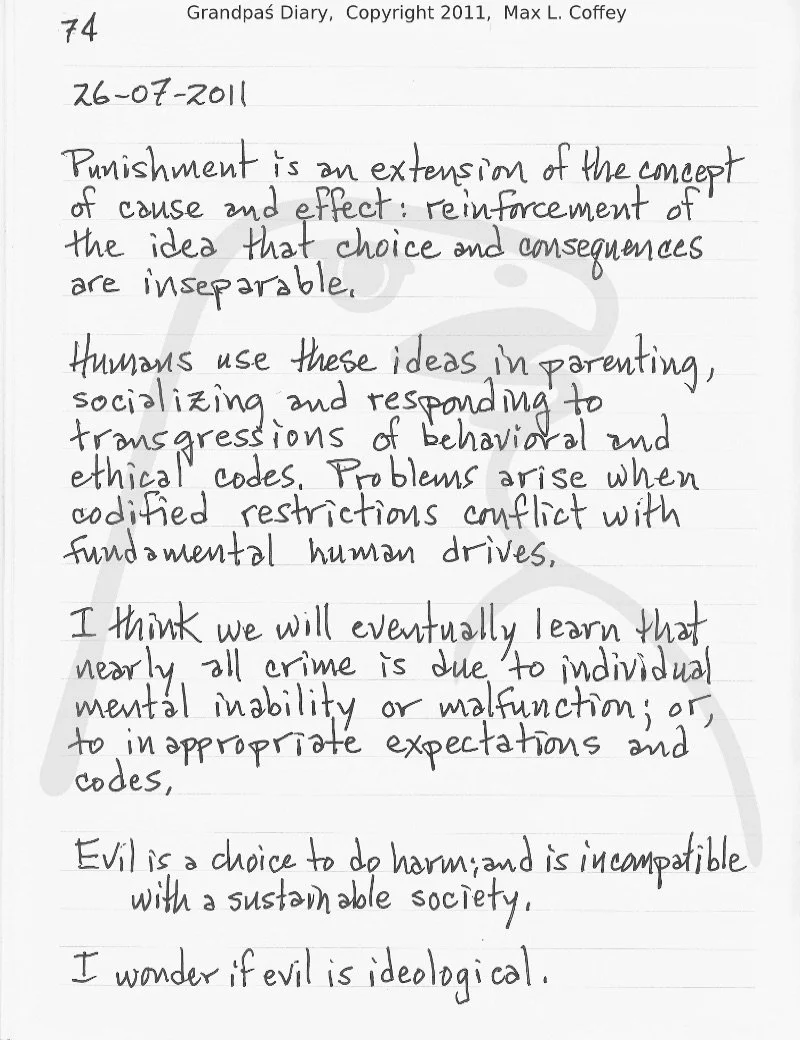 Grandpaś Diary, Copyright 2011, Max L. Coffey
74
26-07-2011
Punishment is an extension of the concept
of cause and effect: reinforcement of
the idea that choice and consequences
are inseparable.
Humans use these ideas in parenting,
socializing and responding to
transgressions of behavioral and
ethical codes. Problems arise when
codified restrictions conflict with
fundamental human drives.
I think we will eventually learn that
nearly all crime is due to individual
mental inability or malfunction; or,
to inappropriate expectations and
codes.
Evil is a choice to do harm; and is incompatible
with a sustainable society.
I wonder if evil is ideological.